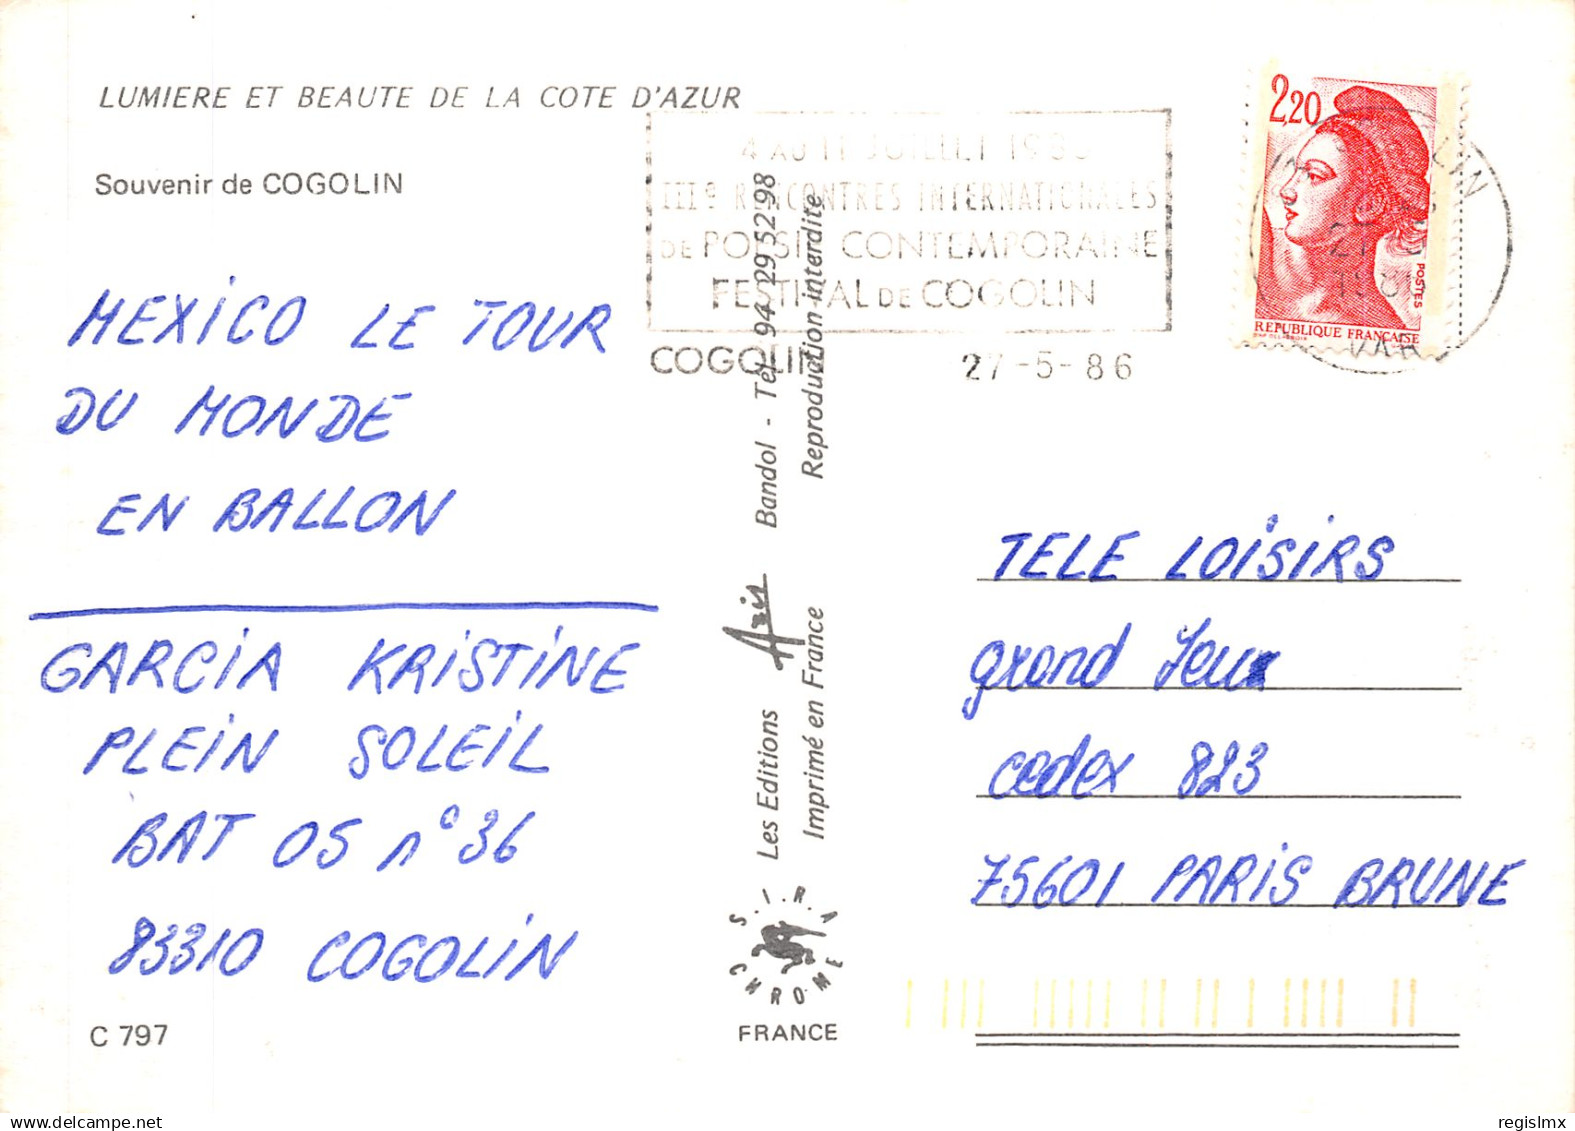 LUMIERE ET BEAUTE DE LA COTE D'AZUR
Souvenir de COGOLIN
4 AU 11 JUILLET 1986
IIIe RENCONTRES INTERNATIONALES
DE POESIE CONTEMPORAINE
FESTIVAL DE COGOLIN
COGOLIN
27-5-86
2,20
POSTES
REPUBLIQUE FRANÇAISE
COGOLIN
VAR
MEXiCO LE TOUR
DU MONDE
EN BALLON
GARCiA KRiSTiNE
PLEiN SOLEiL
BAT 05 n° 36
83310 COGOLiN
C 797
Les Editions Aris Bandol - Tél. 94 29 52 98
Imprimé en France Reproduction interdite
S.I.R.A
CHROME
FRANCE
TELE LOiSiRS
grand Jeux
cedex 823
75601 PARiS BRUNE
regislmx